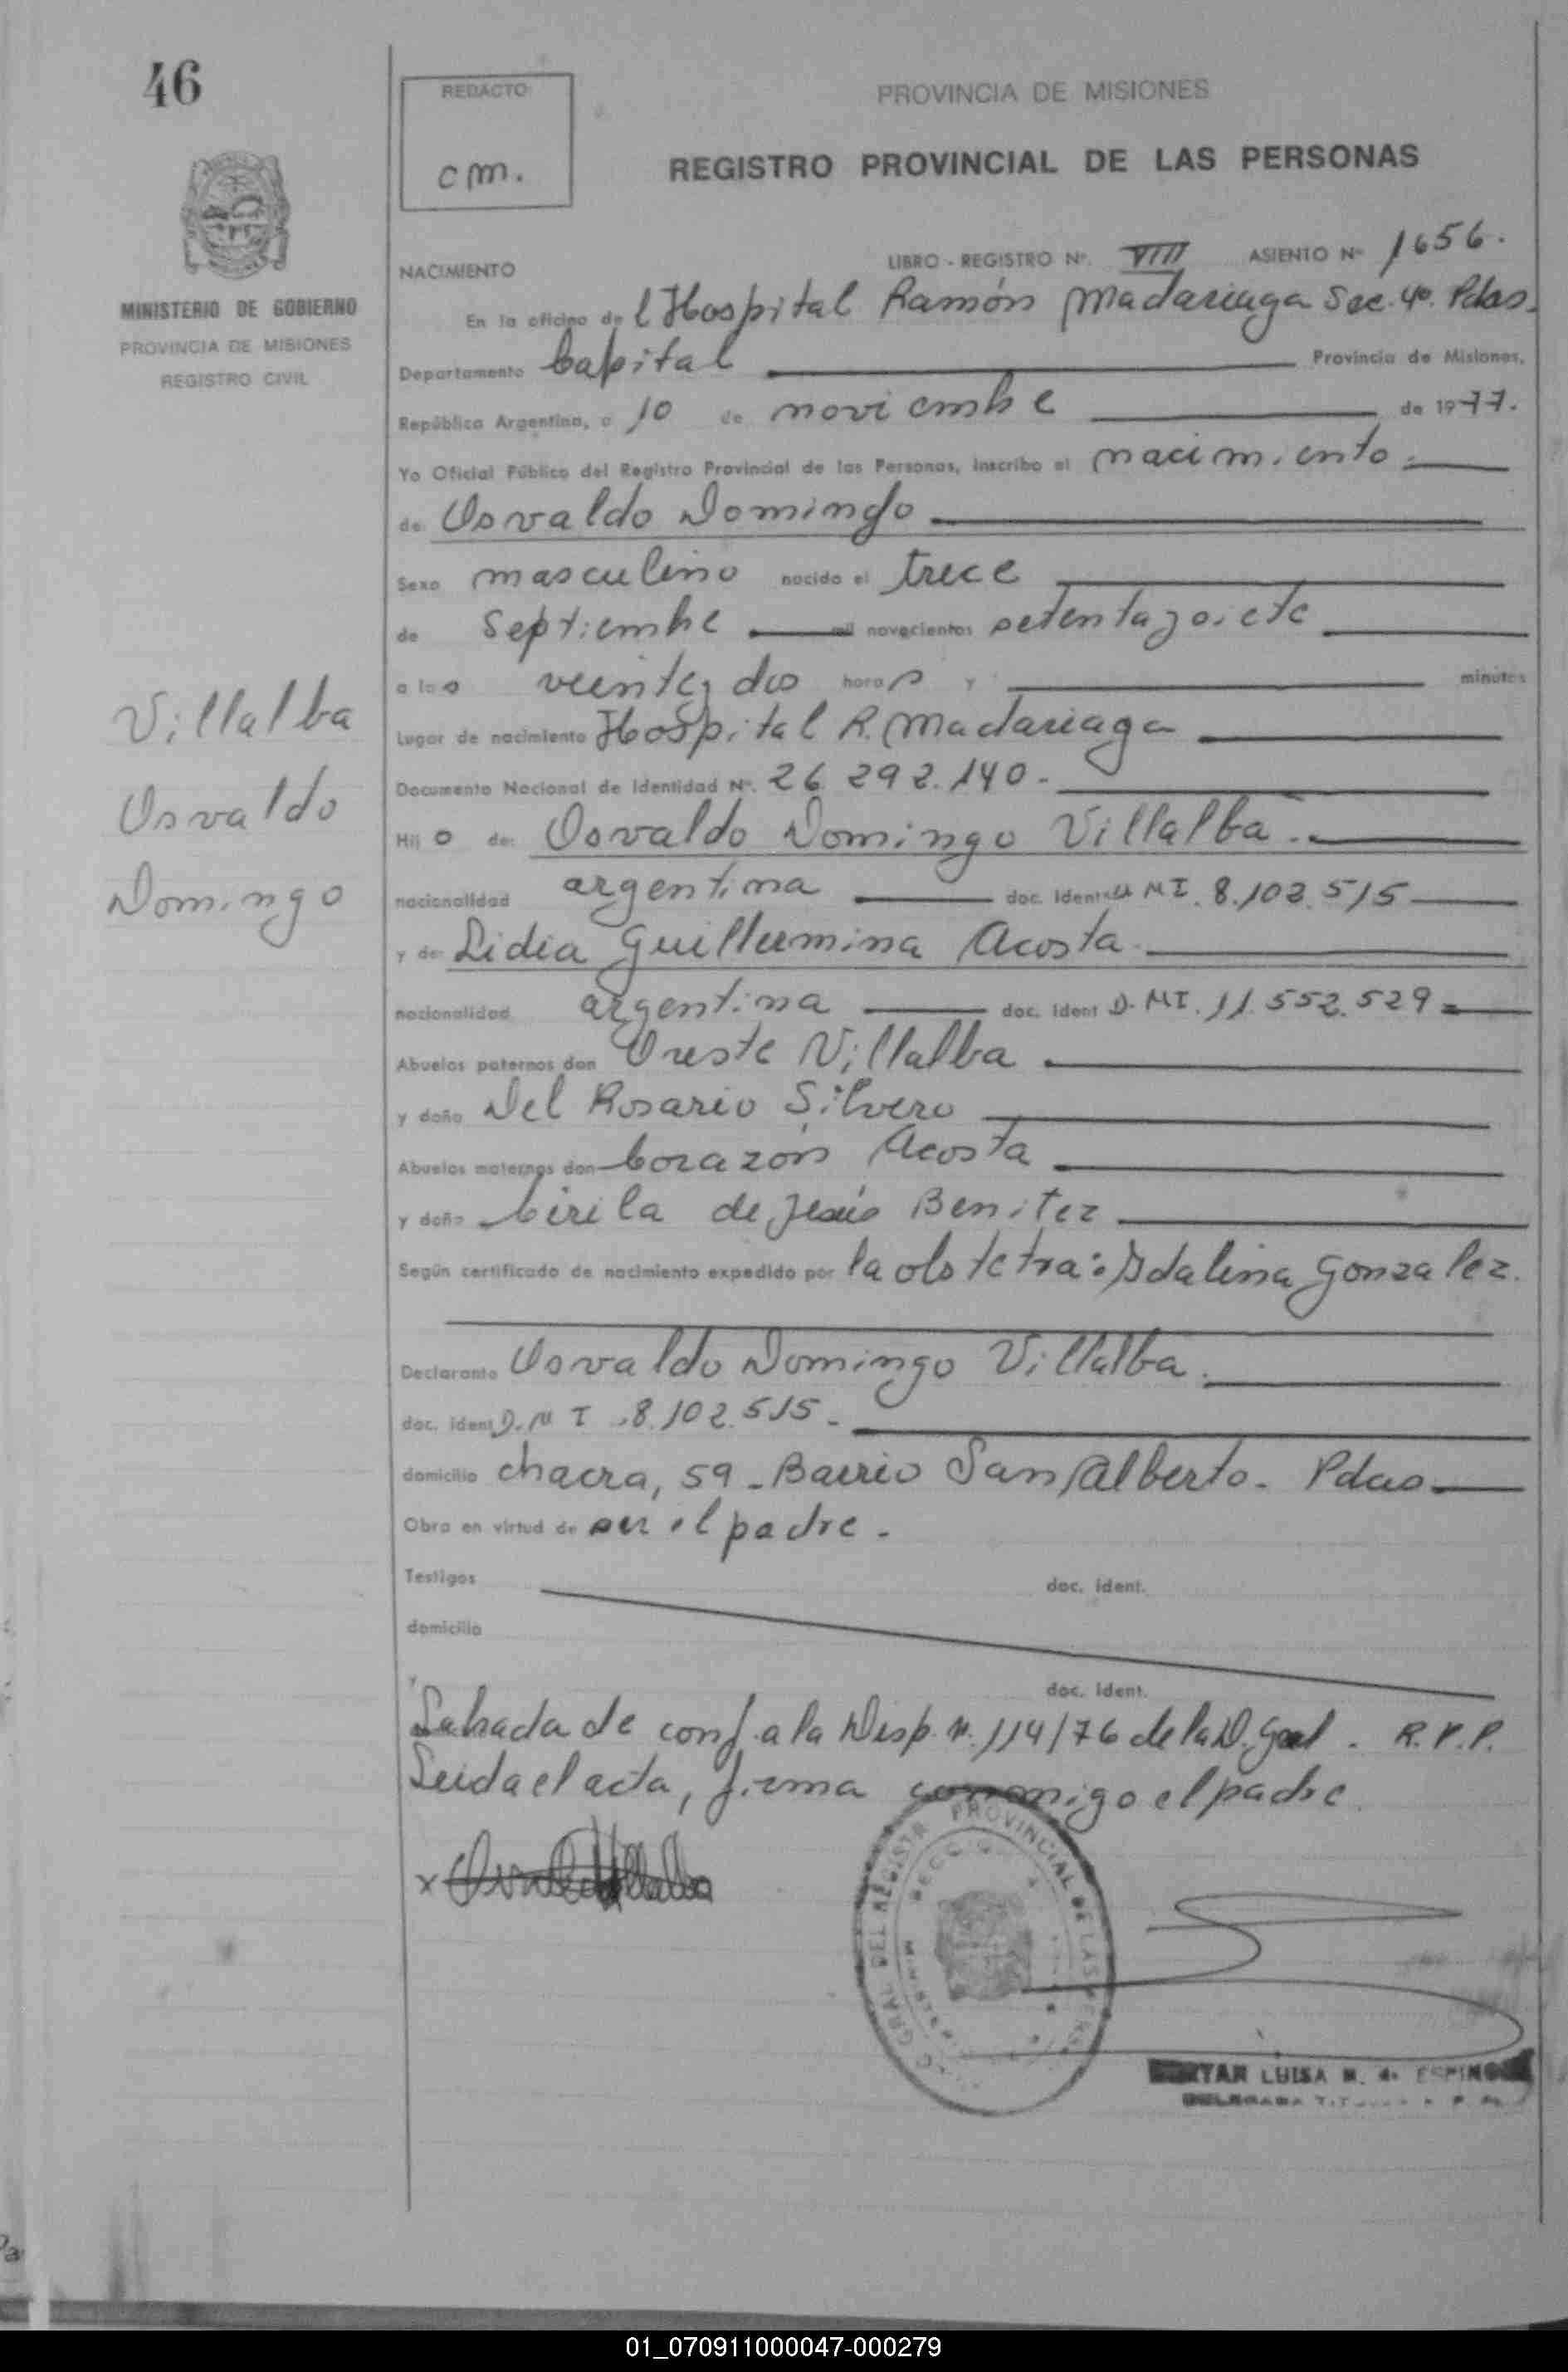 46
REDACTO
cm.
PROVINCIA DE MISIONES
REGISTRO PROVINCIAL DE LAS PERSONAS
MINISTERIO DE GOBIERNO
PROVINCIA DE MISIONES
REGISTRO CIVIL
NACIMIENTO
LIBRO - REGISTRO Nº. VIII ASIENTO Nº 1656.
En la oficina de l Hospital Ramón Madariaga Sec. 4º. Pdas.
Departamento Capital Provincia de Misiones,
República Argentina, a 10 de noviembre de 1977.
Yo Oficial Público del Registro Provincial de las Personas, inscribo el nacimiento
de Osvaldo Domingo
Sexo masculino nacido el trece
de Septiembre mil novecientos setenta y siete
a las veinte y dos horas y minutos
Lugar de nacimiento Hospital R. Madariaga
Documento Nacional de Identidad Nº. 26.292.140.-
Villalba
Osvaldo
Domingo
Hij o de: Osvaldo Domingo Villalba.
nacionalidad argentina doc. Ident. NI. 8.102.515
y de Lidia Guillermina Acosta
nacionalidad argentina doc. Ident D. NI. 11.552.529
Abuelos paternos don Oreste Villalba
y doña Del Rosario Silvero
Abuelos maternos don Corazón Acosta
y doña Cirila de Jesús Benitez
Según certificado de nacimiento expedido por la obstetra: Idalina Gonzalez.
Declarante Osvaldo Domingo Villalba.
doc. ident D. N I 8.102.515.-
domicilio chacra, 59 - Barrio San Alberto - Pdas
Obra en virtud de ser el padre.
Testigos doc. ident.
domicilio
doc. ident.
Labrada de conf. a la Disp. n. 114/76 de la D. Gral. R.P.P.
Leida el acta, firma conmigo el padre.
x Osvaldo Villalba
GRAL DEL REGISTR PROVINCIAL DE LAS PERS
LUISA N. de ESPINO
01_070911000047-000279